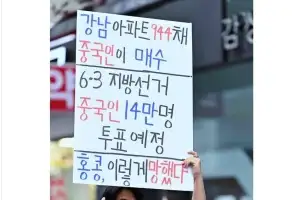 강남 아파트 944채
중국인이 매수
6·3 지방선거
중국인 14만명
투표예정
홍콩, 이렇게 망했다